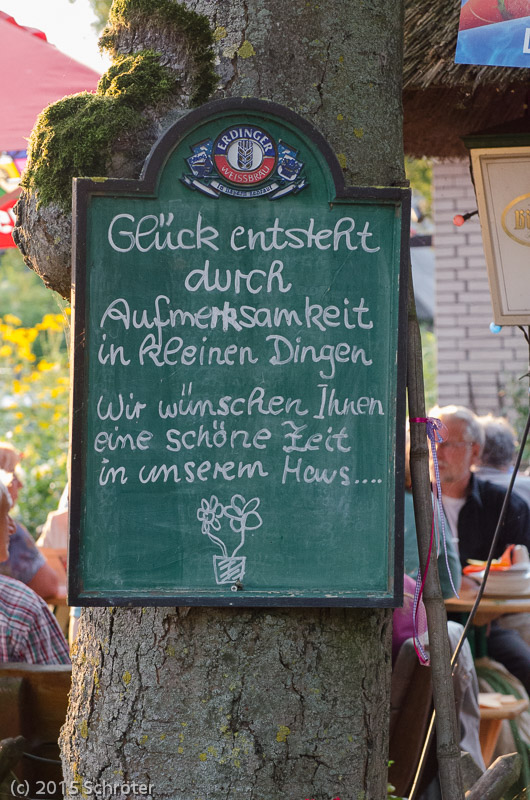 ERDINGER
WEISSBRÄU
Glück entsteht
durch
Aufmerksamkeit
in kleinen Dingen
Wir wünschen Ihnen
eine schöne Zeit
in unserem Haus....
(c) 2015 Schröter